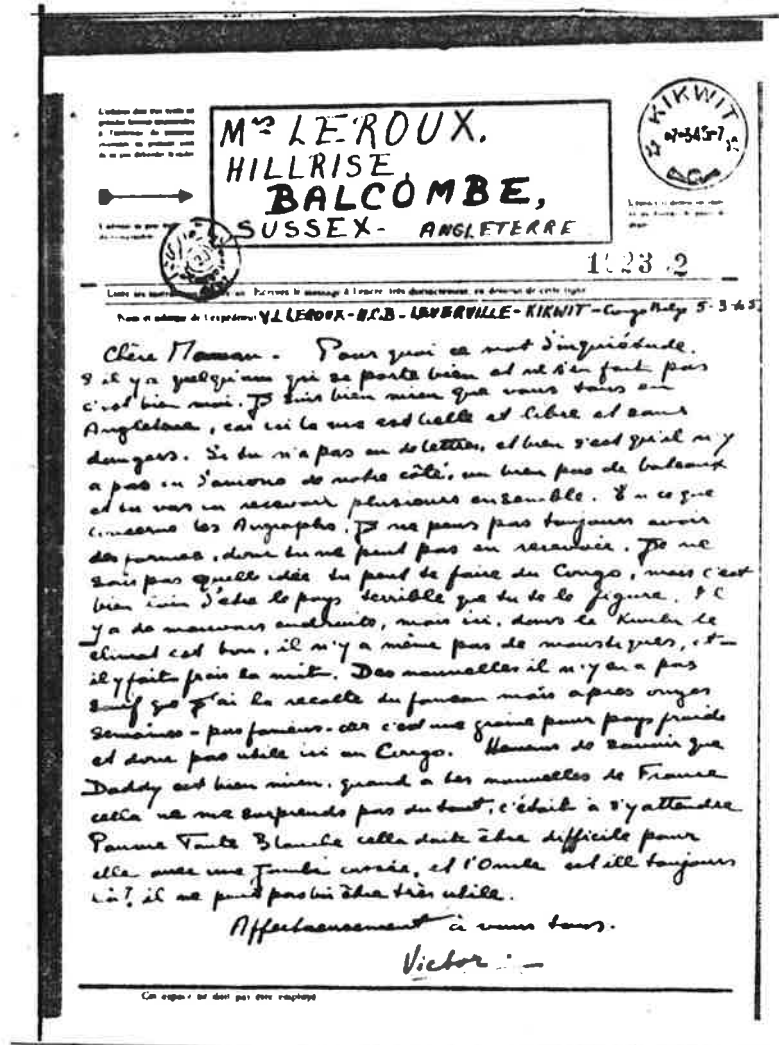 Mrs LEROUX.
HILLRISE,
BALCOMBE,
SUSSEX- ANGLETERRE
KIKWIT
Nom et adresse de l'expéditeur V.L LEROUX - H.C.B - LEVERVILLE - KIKWIT - Congo Belge 5-3-45
Chère Maman - Pourquoi ce mot d'inquiétude.
S'il y a quelqu'un qui se porte bien et ne s'en fait pas
c'est bien moi. Je suis bien mieu que vous tous en
Angleterre, car ici la vie est belle et libre et sans
dangers. Si tu n'a pas eu de lettres, et bien s'est qu'il n'y
a pas eu d'avions de notre côté, ou bien pas de bateaux
et tu vas en recevoir plusieurs ensemble. En ce que
concerne les Airgraphs. Je ne peux pas toujours avoir
des formes, donc tu ne peut pas en recevoir. Je ne
sais pas quelle idée tu peut te faire du Congo, mais c'est
bien loin d'être le pays terrible que tu te le figure. Il
y a de mauvais endroits, mais ici, dans le Kwilu le
climat est bon, il n'y a même pas de moustiques, et
il y fait frais la nuit. Des nouvelles il n'y en a pas
sauf que j'ai la recolte du mais apres onzes
semaines - pas fameux - car c'est une graine pour pays froids
et donc pas utile ici au Congo. Heureux de savoir que
Daddy est bien mieu. quand a tes nouvelles de France
cella ne me surprends pas du tout, c'était à s'y attendre
Pauvre Tante Blanche cella doite être difficile pour
elle avec une jambe cassée, et l'Oncle est ill toujours
là? il ne peut pas lui être très utile.
Affectueusement à vous tous.
Victor
Cet espace ne doit pas être employé